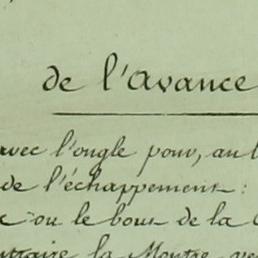 de l'avance
avec l'ongle pour, au
de l'échappement:
ou le bout de la
la Montre